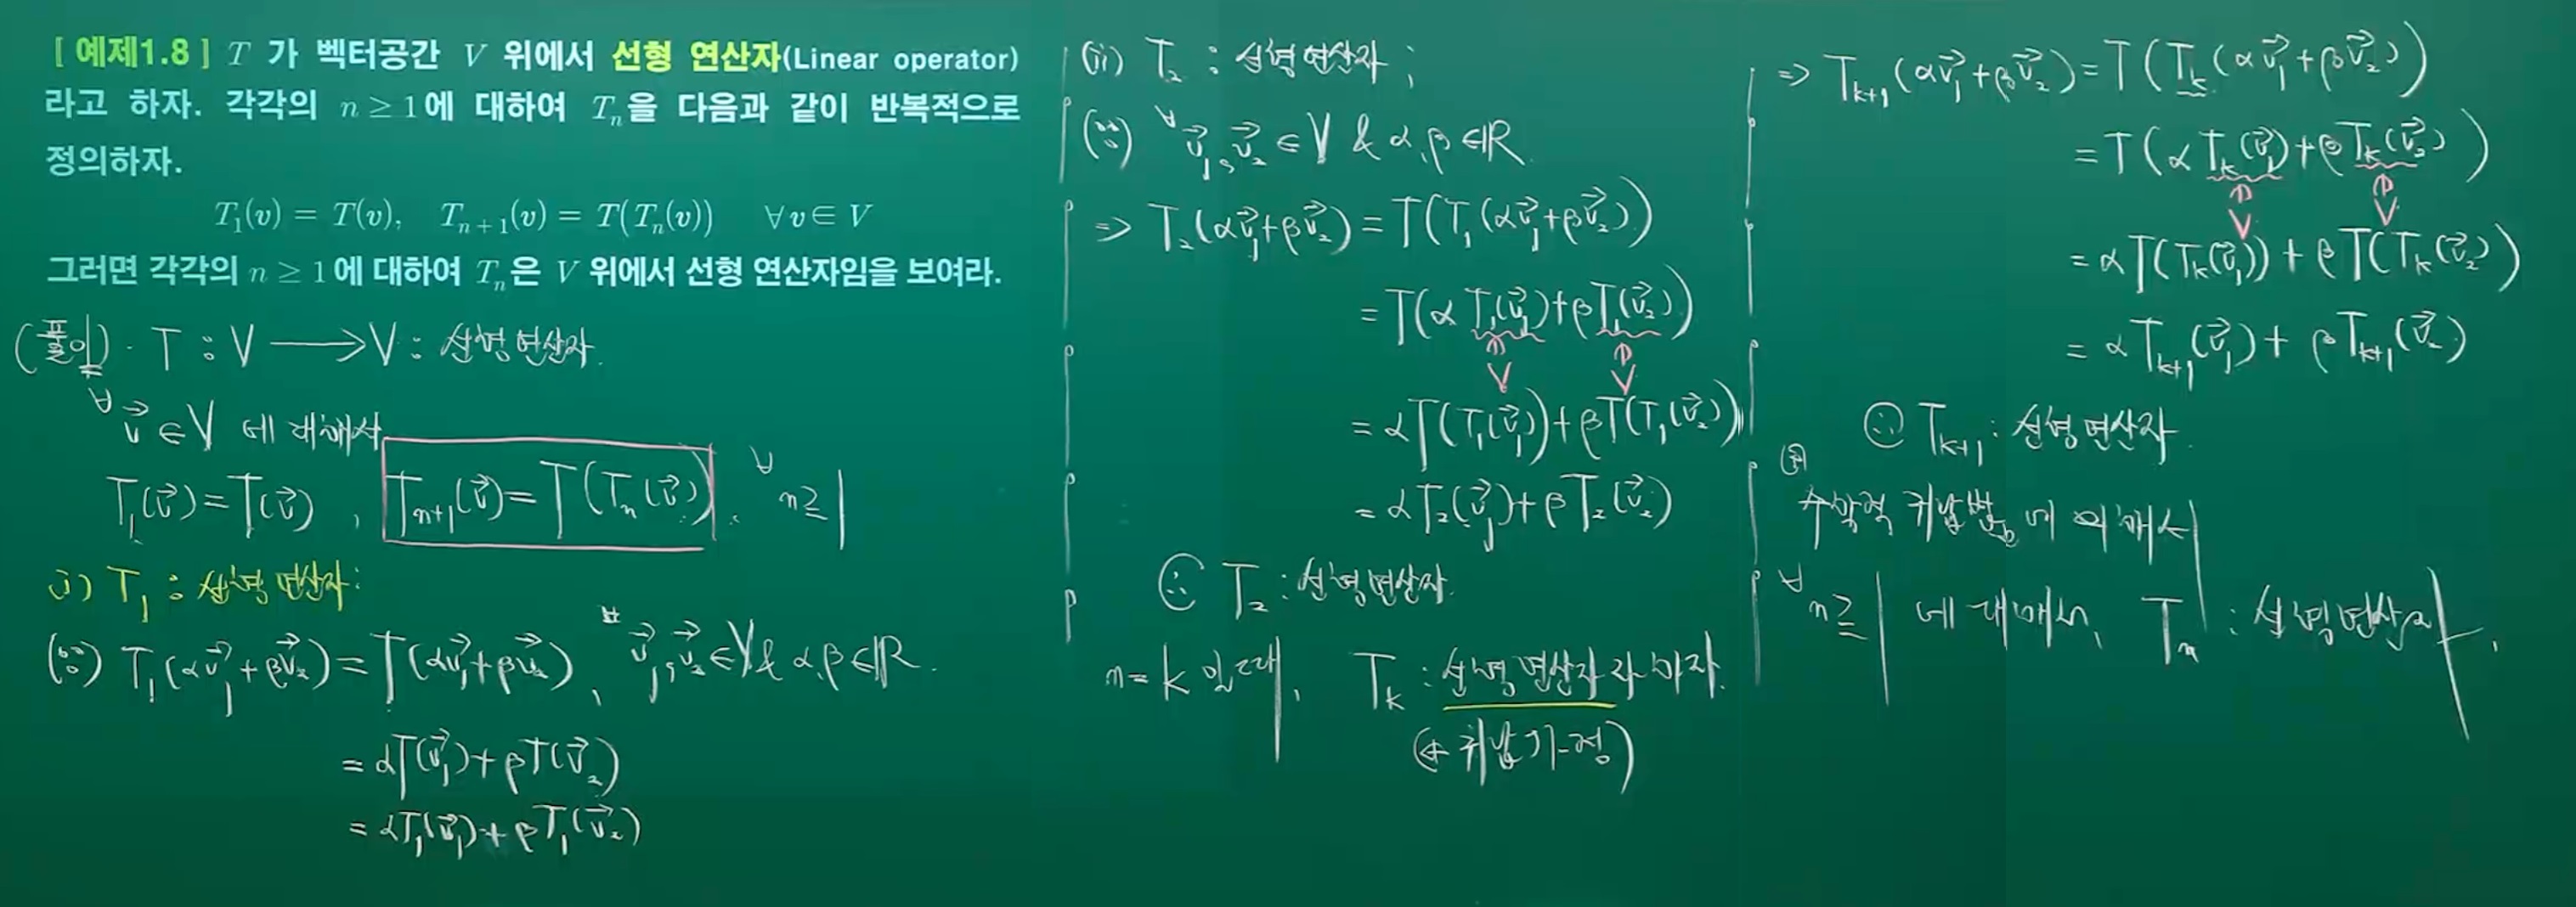 [예제1.8] T 가 벡터공간 V 위에서 선형 연산자(Linear operator)
라고 하자. 각각의 n ≥ 1에 대하여 Tₙ을 다음과 같이 반복적으로
정의하자.
T₁(v) = T(v), Tₙ₊₁(v) = T(Tₙ(v)) ∀v ∈ V
그러면 각각의 n ≥ 1에 대하여 Tₙ은 V 위에서 선형 연산자임을 보여라.
(풀이) · T : V ⟶ V : 선형연산자.
∀v⃗ ∈ V 에 대해서
T₁(v⃗) = T(v⃗), Tₙ₊₁(v⃗) = T(Tₙ(v⃗)), ∀n ≥ 1
(i) T₁ : 선형연산자:
(∵) T₁(αv⃗₁+βv⃗₂) = T(αv⃗₁+βv⃗₂), ∀v⃗₁, v⃗₂ ∈ V & α, β ∈ ℝ.
= αT(v⃗₁) + βT(v⃗₂)
= αT₁(v⃗₁) + βT₁(v⃗₂)
(ii) T₂ : 선형연산자;
(∵) ∀v⃗₁, v⃗₂ ∈ V & α, β ∈ ℝ
⇒ T₂(αv⃗₁+βv⃗₂) = T(T₁(αv⃗₁+βv⃗₂))
= T(αT₁(v⃗₁)+βT₁(v⃗₂))
V V
= αT(T₁(v⃗₁)) + βT(T₁(v⃗₂))
= αT₂(v⃗₁) + βT₂(v⃗₂)
∴ T₂ : 선형연산자.
n = k 일 때, Tₖ : 선형연산자라 하자.
(← 귀납가정)
⇒ Tₖ₊₁(αv⃗₁+βv⃗₂) = T(Tₖ(αv⃗₁+βv⃗₂))
= T(αTₖ(v⃗₁)+βTₖ(v⃗₂))
V V
= αT(Tₖ(v⃗₁)) + βT(Tₖ(v⃗₂))
= αTₖ₊₁(v⃗₁) + βTₖ₊₁(v⃗₂)
∴ Tₖ₊₁ : 선형연산자.
수학적 귀납법에 의해서
∀n ≥ 1 에 대해서, Tₙ : 선형연산자.